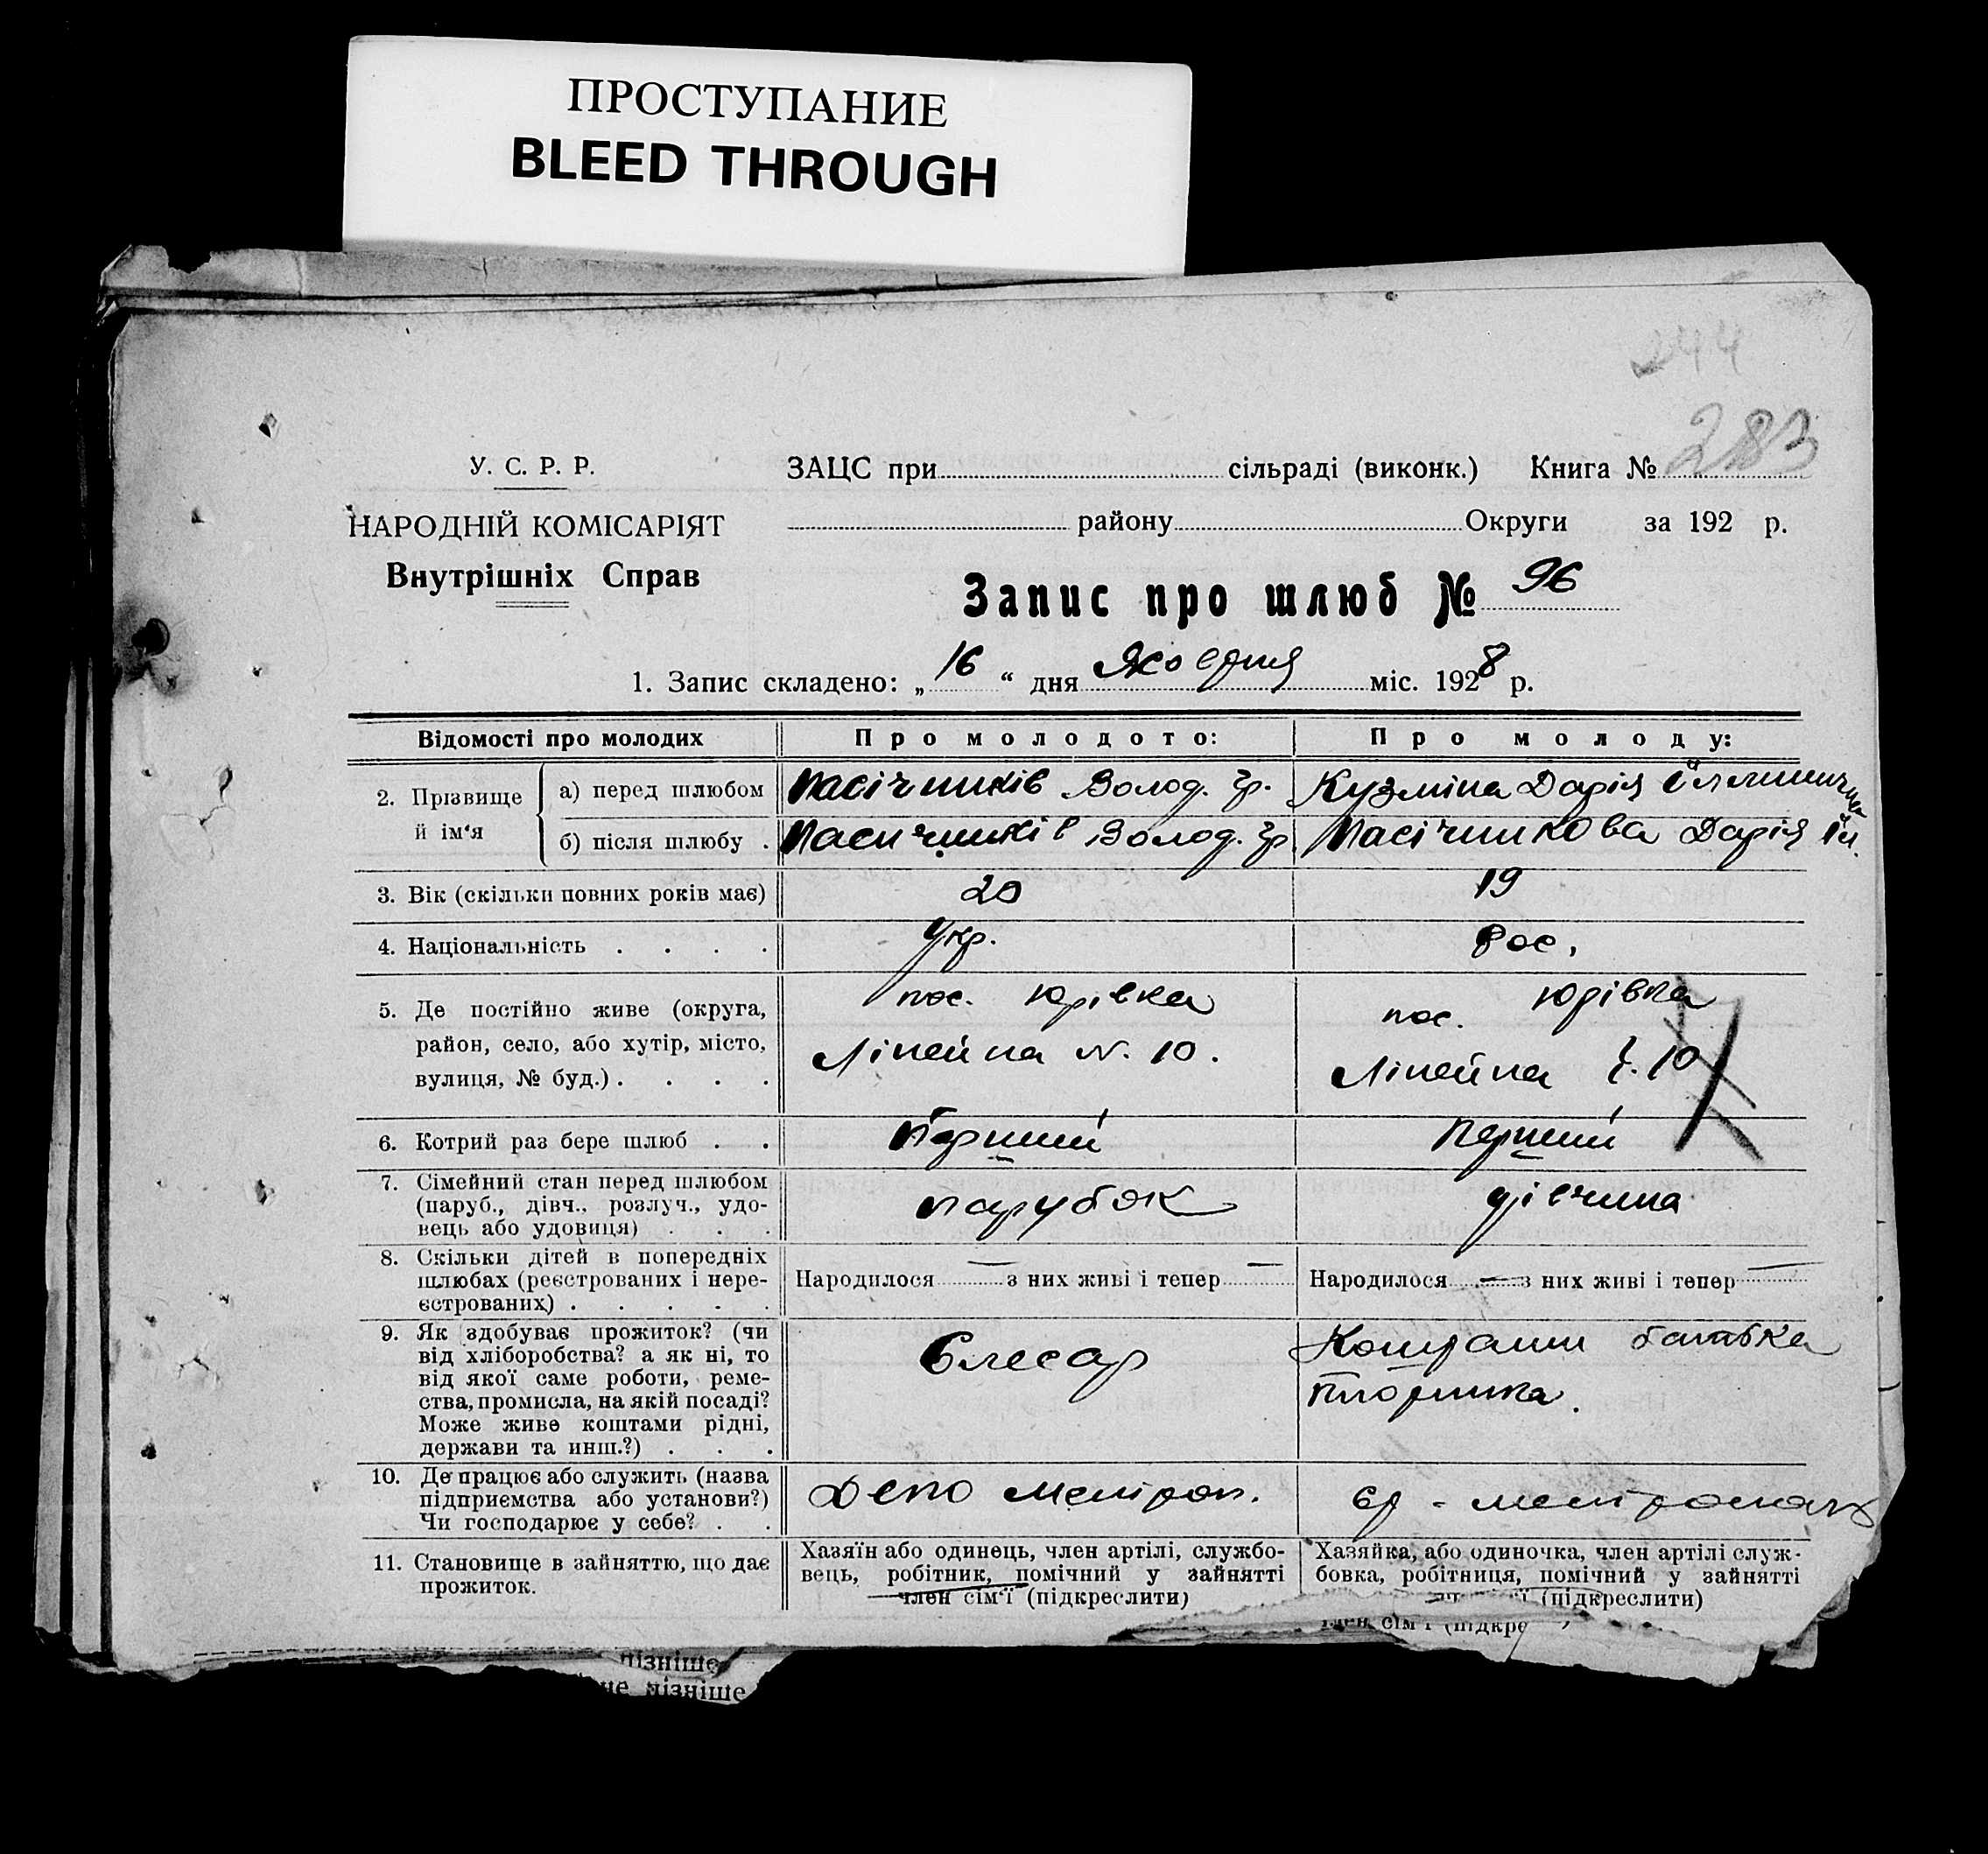 ПРОСТУПАНИЕ
BLEED THROUGH
244
283
У. С. Р. Р.
НАРОДНІЙ КОМІСАРІЯТ
Внутрішніх Справ
ЗАЦС при сільраді (виконк.) Книга №
району Округи за 192 р.
Запис про шлюб № 96
1. Запис складено: „ 16 “ дня Жовтня міс. 1928 р.
Відомості про молодих Про молодого: Про молоду:
2. Прізвище й ім‘я
а) перед шлюбом Пасічників Волод. Гр. Кузміна Дарія
б) після шлюбу . Пасичників Волод. Гр Пасічникова Дарія Іл.
3. Вік (скільки повних років має) 20 19
4. Національність . . . . Укр. Рос.
5. Де постійно живе (округа,
район, село, або хутір, місто,
вулиця, № буд.) . . . .
пос. Юзівка
Лінейна N. 10.
пос. Юзівка
Лінейна ч. 10
6. Котрий раз бере шлюб . . Перший Перший
7. Сімейний стан перед шлюбом
(паруб., дівч., розлуч., удо-
вець або удовиця) . . .
парубок дівчина
8. Скільки дітей в попередніх
шлюбах (реєстрованих і нере-
єстрованих) . . . . .
Народилося — з них живі і тепер —
Народилося — з них живі і тепер —
9. Як здобуває прожиток? (чи
від хліборобства? а як ні, то
від якої саме роботи, реме-
ства, промисла, на якій посаді?
Може живе коштами рідні,
держави та инш.?) . . .
Слесар
Коштами батька
плотника.
10. Де працює або служить (назва
підприємства або установи?)
Чи господарює у себе? . .
Депо
11. Становище в зайняттю, що дає
прожиток.
Хазяїн або одинець, член артілі, службо-
вець, робітник, помічний у зайнятті
член сім‘ї (підкреслити)
Хазяйка, або одиночка, член артілі служ-
бовка, робітниця, помічний у зайнятті
(підкреслити)
член сім‘ї (підкре
пізніше
не пізніше